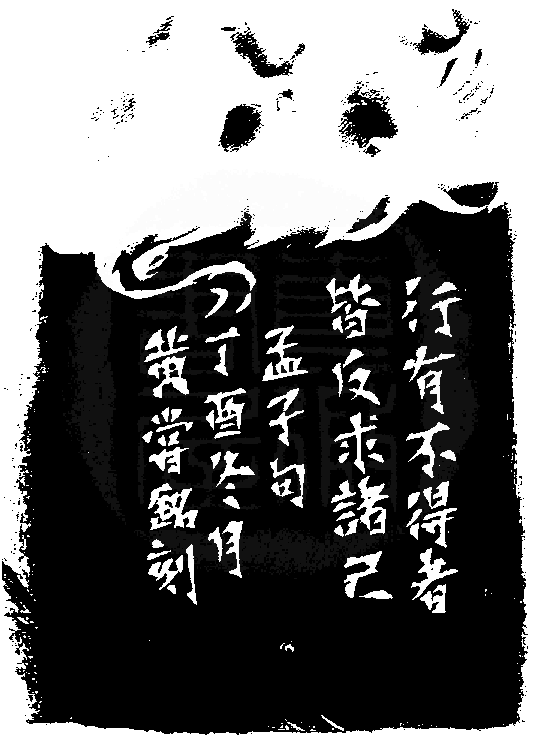 行有不得者
皆反求諸己
孟子句
丁酉冬月
黄嘗銘刻